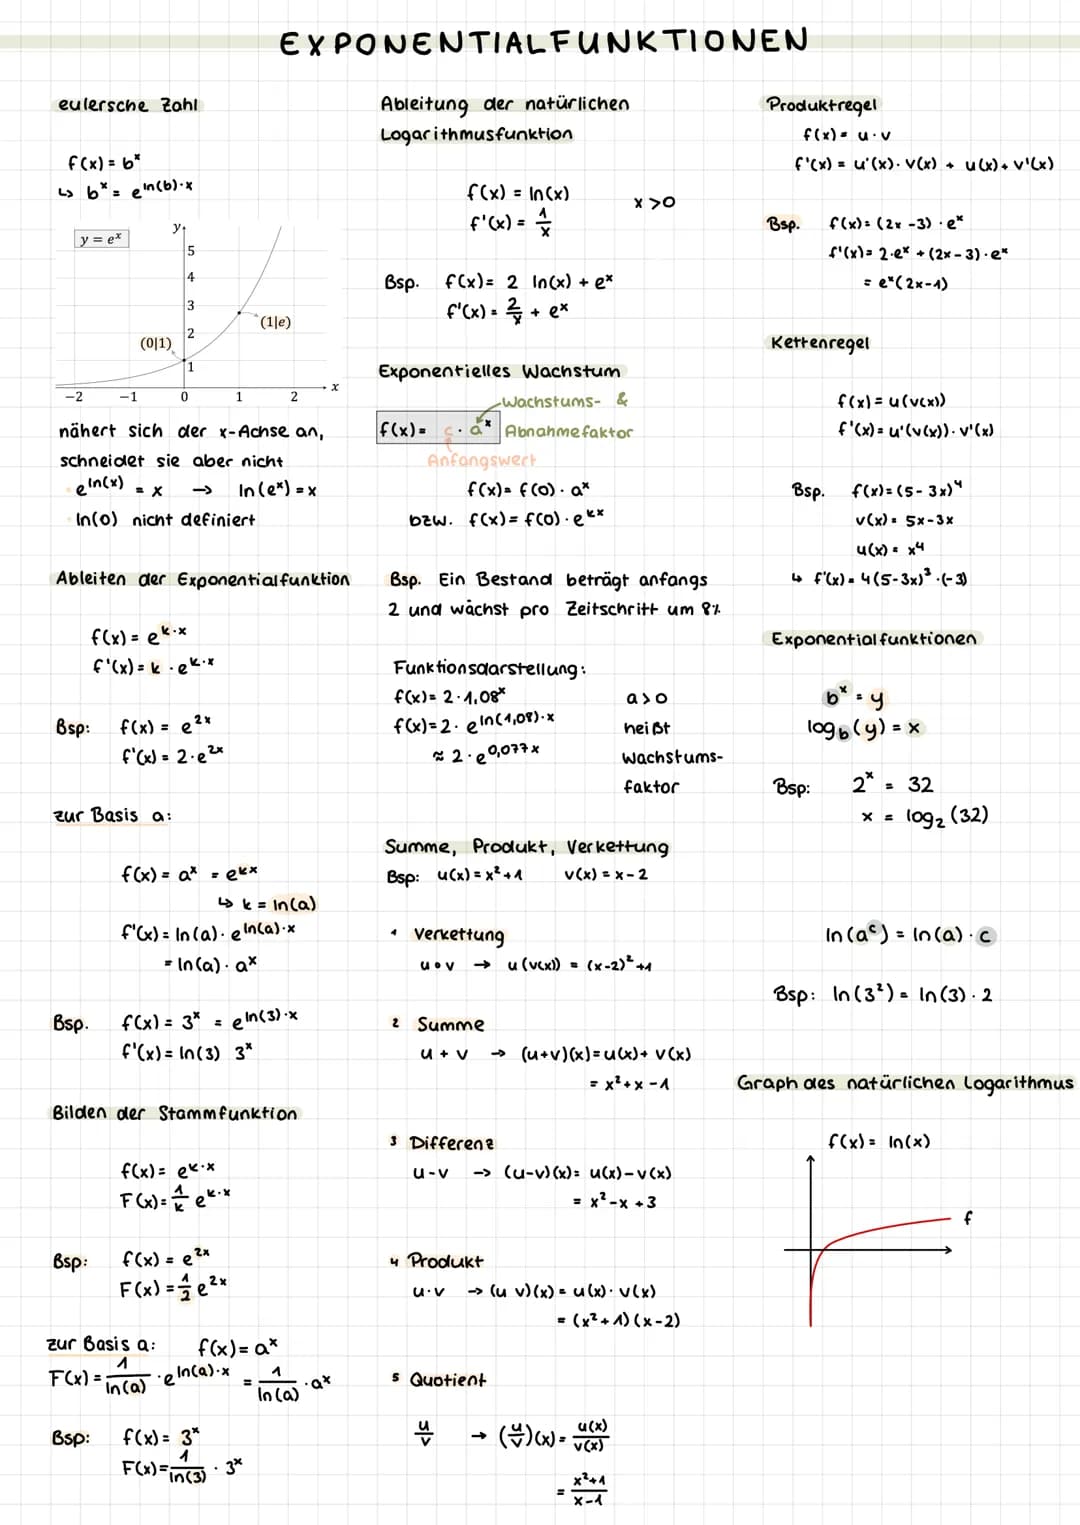 EXPONENTIALFUNKTIONEN
eulersche Zahl
f(x) = bˣ
↳ bˣ = e^(ln(b)·x)
y = eˣ
y
5
4
3
2
1
(1|e)
(0|1)
-2 -1 0 1 2 x
nähert sich der x-Achse an,
schneidet sie aber nicht
· e^(ln(x)) = x → ln(eˣ) = x
· ln(0) nicht definiert
Ableiten der Exponentialfunktion
f(x) = e^(k·x)
f'(x) = k · e^(k·x)
Bsp: f(x) = e^(2x)
f'(x) = 2·e^(2x)
zur Basis a:
f(x) = aˣ = e^(kx)
↳ k = ln(a)
f'(x) = ln(a) · e^(ln(a)·x)
= ln(a) · aˣ
Bsp. f(x) = 3ˣ = e^(ln(3)·x)
f'(x) = ln(3) 3ˣ
Bilden der Stammfunktion
f(x) = e^(k·x)
F(x) = 1/k e^(k·x)
Bsp: f(x) = e^(2x)
F(x) = 1/2 e^(2x)
zur Basis a: f(x) = aˣ
F(x) = 1/ln(a) · e^(ln(a)·x) = 1/ln(a) · aˣ
Bsp: f(x) = 3ˣ
F(x) = 1/ln(3) · 3ˣ
Ableitung der natürlichen
Logarithmusfunktion
f(x) = ln(x)
f'(x) = 1/x
x > 0
Bsp. f(x) = 2 ln(x) + eˣ
f'(x) = 2/x + eˣ
Exponentielles Wachstum
Wachstums- &
f(x) = c · aˣ Abnahmefaktor
Anfangswert
f(x) = f(0) · aˣ
bzw. f(x) = f(0) · e^(kx)
Bsp. Ein Bestand beträgt anfangs
2 und wächst pro Zeitschritt um 8%
Funktionsdarstellung:
f(x) = 2·1,08ˣ
f(x) = 2 · e^(ln(1,08)·x)
≈ 2 · e^(0,077x)
a > 0
heißt
Wachstums-
faktor
Summe, Produkt, Verkettung
Bsp: u(x) = x²+1 v(x) = x-2
1 Verkettung
u∘v → u(v(x)) = (x-2)²+1
2 Summe
u + v → (u+v)(x) = u(x) + v(x)
= x²+x-1
3 Differenz
u-v → (u-v)(x) = u(x)-v(x)
= x²-x+3
4 Produkt
u·v → (u v)(x) = u(x) · v(x)
= (x²+1)(x-2)
5 Quotient
u/v → (u/v)(x) = u(x)/v(x)
= x²+1/x-1
Produktregel
f(x) = u·v
f'(x) = u'(x) · v(x) + u(x) + v'(x)
Bsp. f(x) = (2x-3) · eˣ
f'(x) = 2·eˣ + (2x-3) · eˣ
= eˣ(2x-1)
Kettenregel
f(x) = u(v(x))
f'(x) = u'(v(x)) · v'(x)
Bsp. f(x) = (5-3x)⁴
v(x) = 5x-3x
u(x) = x⁴
↳ f'(x) = 4(5-3x)³ · (-3)
Exponentialfunktionen
bˣ = y
log_b(y) = x
Bsp: 2ˣ = 32
x = log₂(32)
ln(aᶜ) = ln(a) · c
Bsp: ln(3²) = ln(3) · 2
Graph des natürlichen Logarithmus
f(x) = ln(x)
f